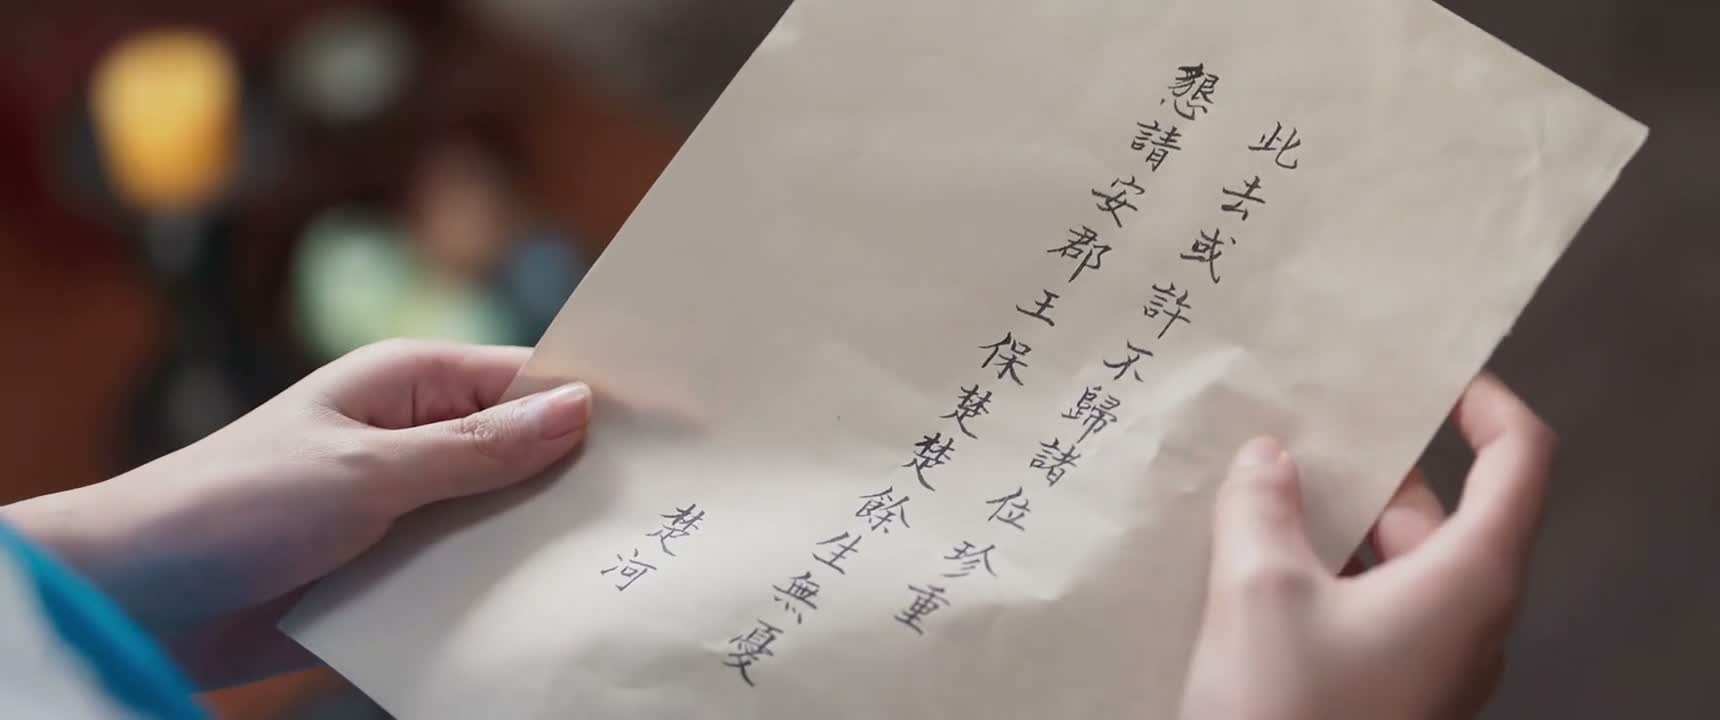 此去或許不歸諸位珍重
懇請安郡王保楚楚餘生無憂
楚河